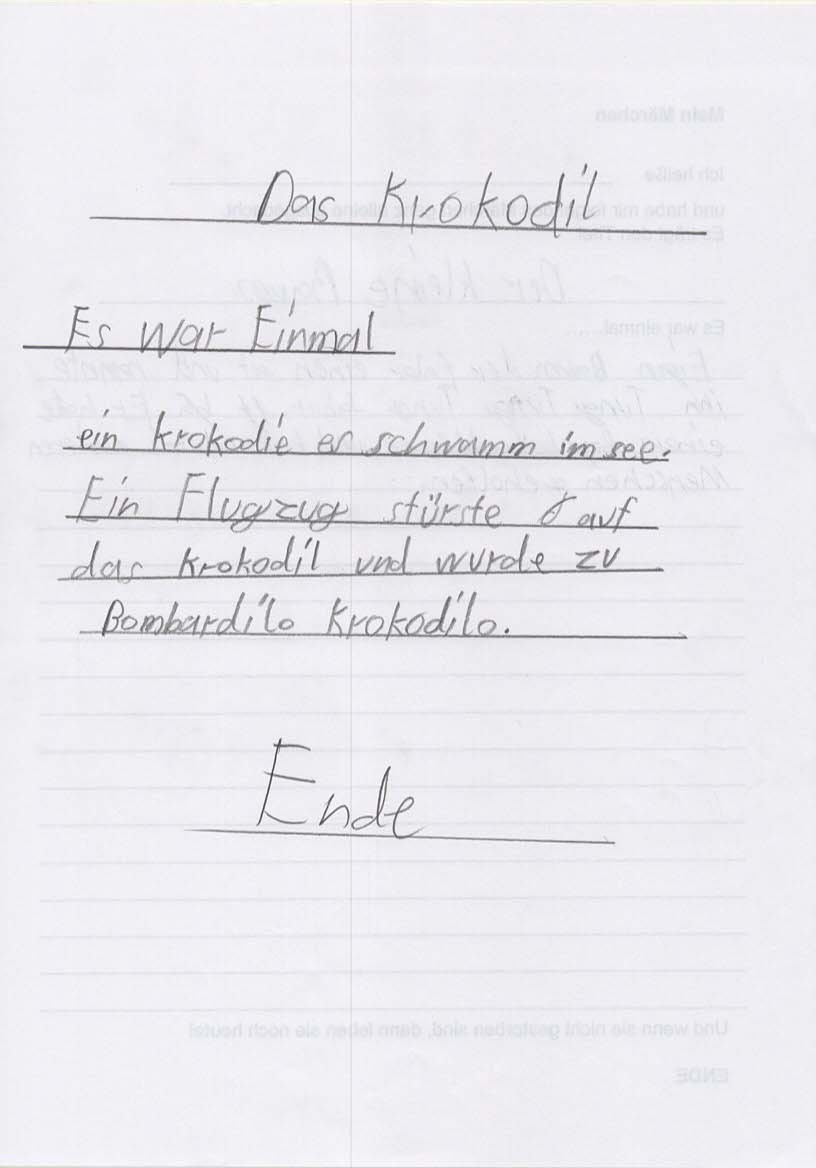 Das Krokodil
Es war Einmal
ein krokodie er schwamm im see.
Ein Flugzug stürste auf
das krokodil und wurde zu
Bombardilo krokodilo.
Ende